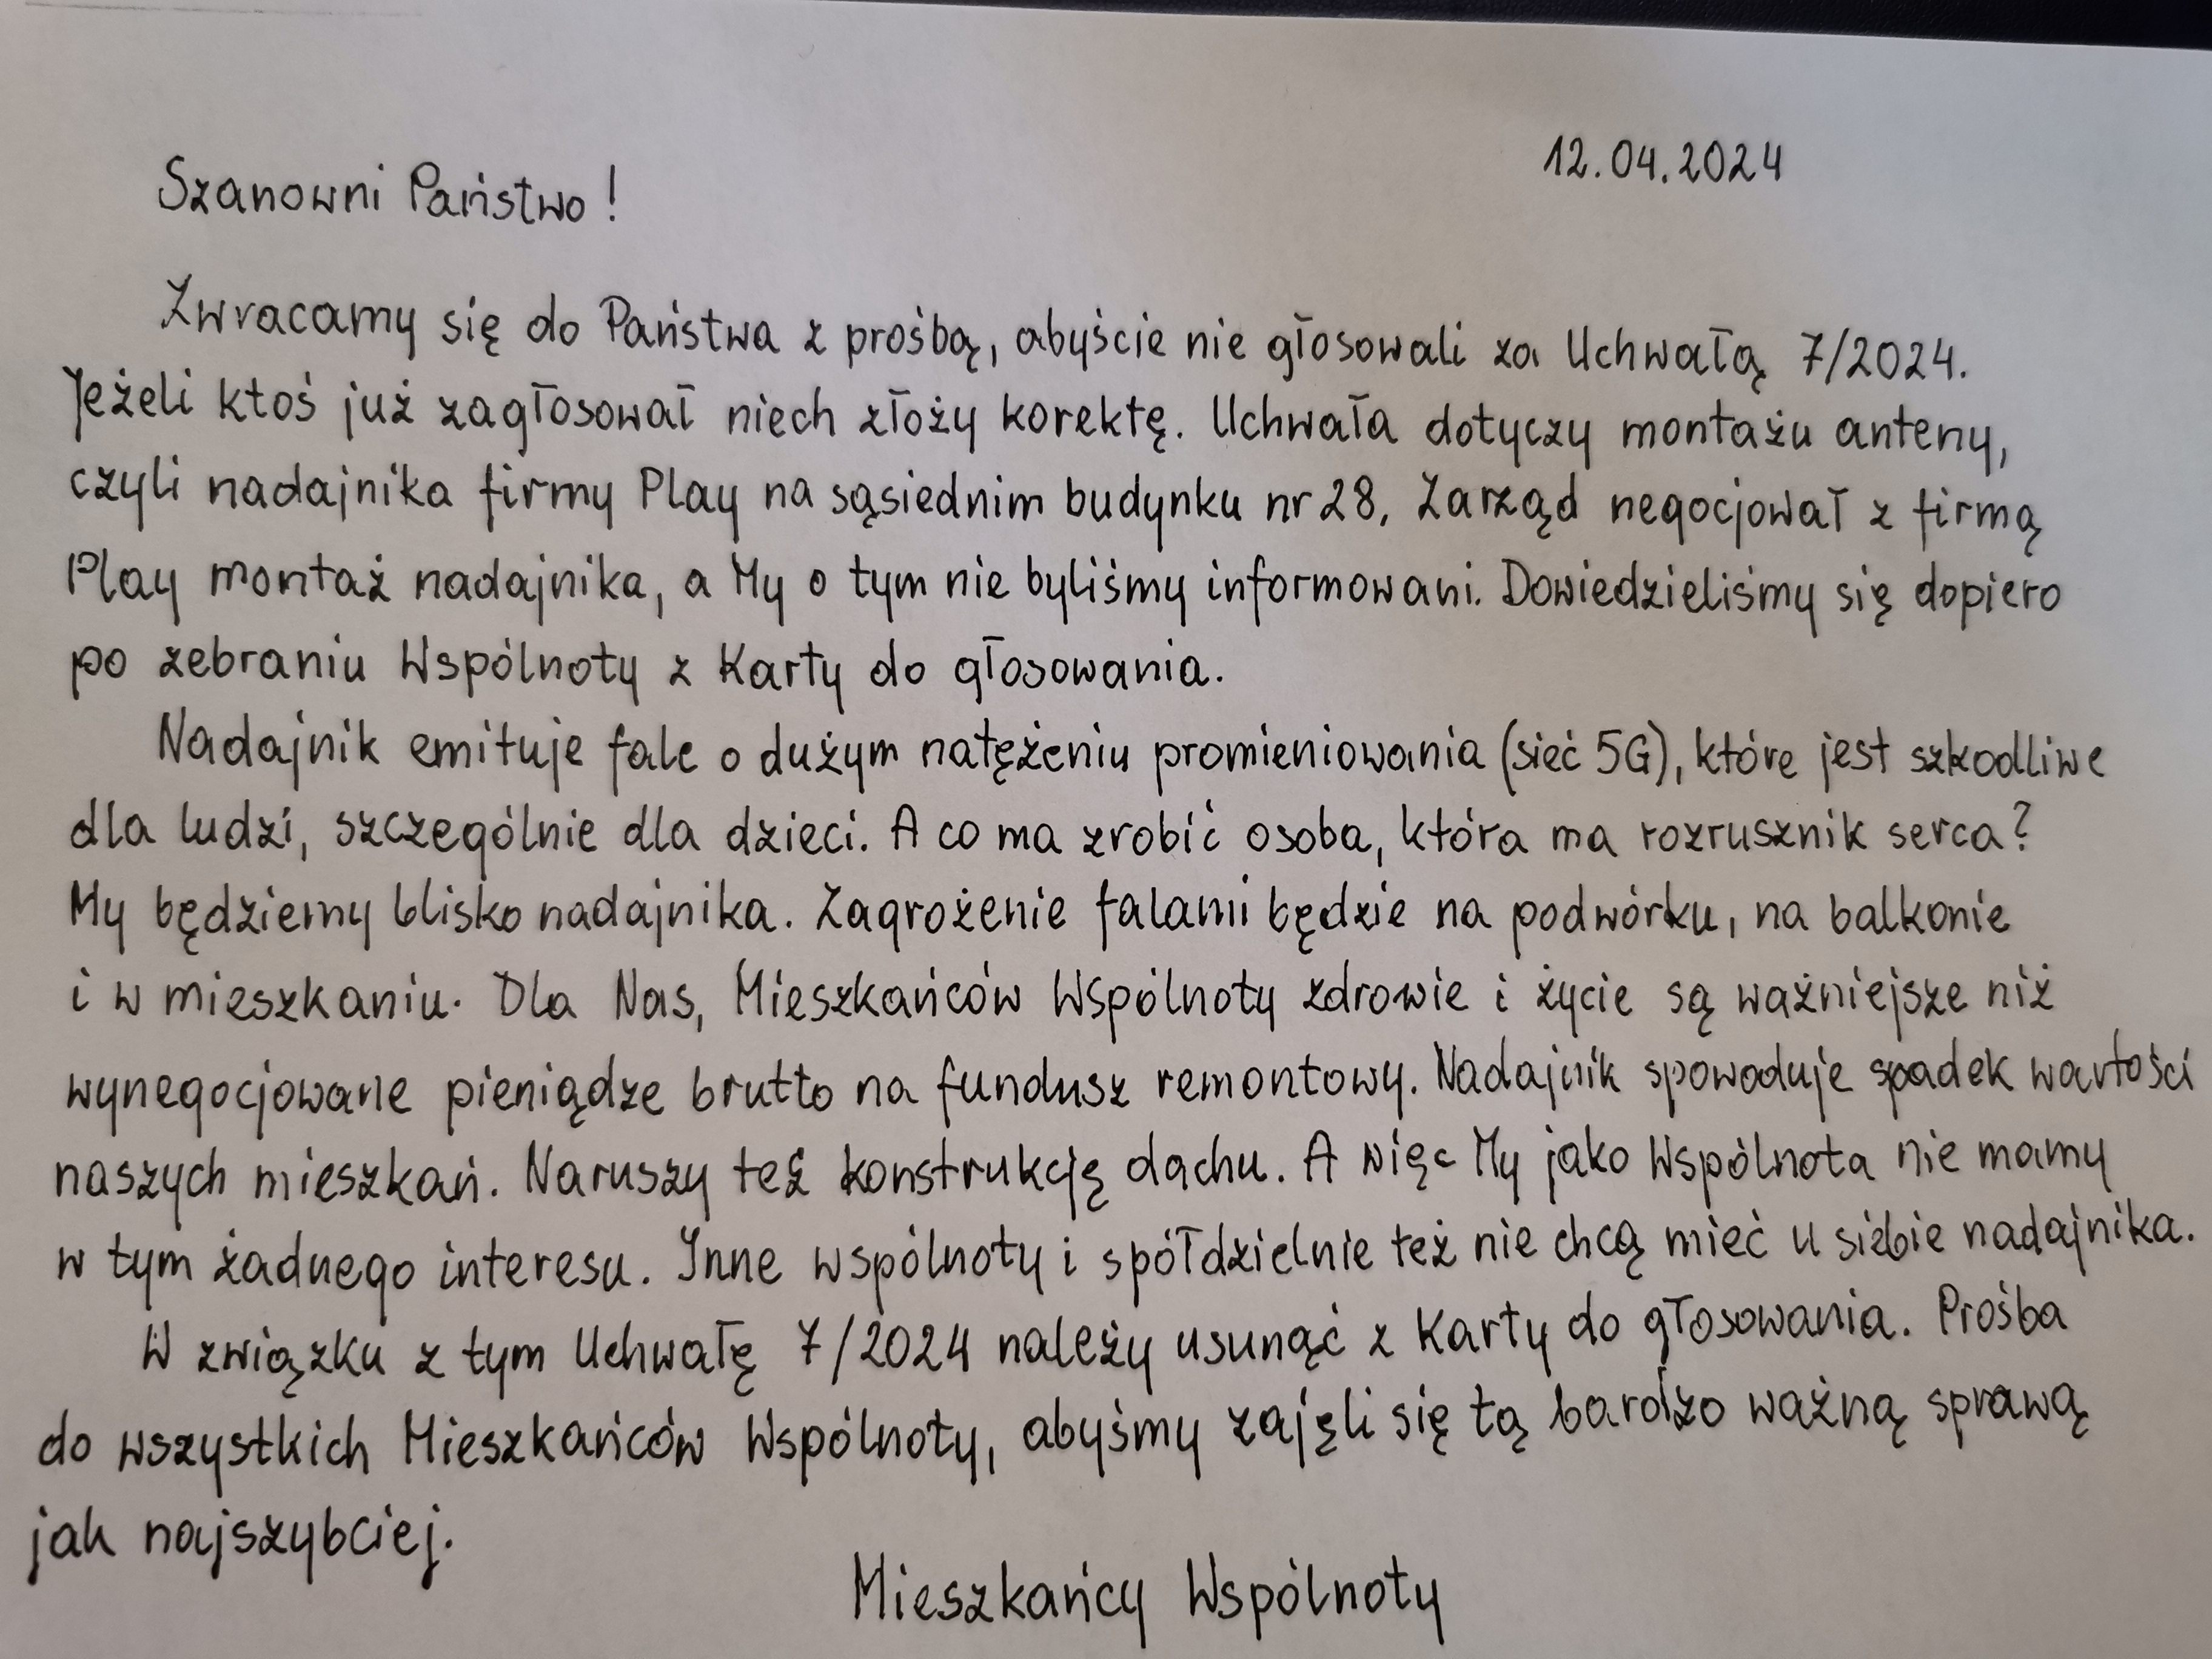 12.04.2024
Szanowni Państwo!
Zwracamy się do Państwa z prośbą, abyście nie głosowali za Uchwałą 7/2024.
Jeżeli ktoś już zagłosował niech złoży korektę. Uchwała dotyczy montażu anteny,
czyli nadajnika firmy Play na sąsiednim budynku nr 28. Zarząd negocjował z firmą
Play montaż nadajnika, a My o tym nie byliśmy informowani. Dowiedzieliśmy się dopiero
po zebraniu Wspólnoty z Karty do głosowania.
Nadajnik emituje fale o dużym natężeniu promieniowania (sieć 5G), które jest szkodliwe
dla ludzi, szczególnie dla dzieci. A co ma zrobić osoba, która ma rozrusznik serca?
My będziemy blisko nadajnika. Zagrożenie falami będzie na podwórku, na balkonie
i w mieszkaniu. Dla Nas, Mieszkańców Wspólnoty zdrowie i życie są ważniejsze niż
wynegocjowane pieniądze brutto na fundusz remontowy. Nadajnik spowoduje spadek wartości
naszych mieszkań. Naruszy też konstrukcję dachu. A więc My jako Wspólnota nie mamy
w tym żadnego interesu. Inne wspólnoty i spółdzielnie też nie chcą mieć u siebie nadajnika.
W związku z tym Uchwałę 7/2024 należy usunąć z Karty do głosowania. Prośba
do wszystkich Mieszkańców Wspólnoty, abyśmy zajęli się tą bardzo ważną sprawą
jak najszybciej.
Mieszkańcy Wspólnoty